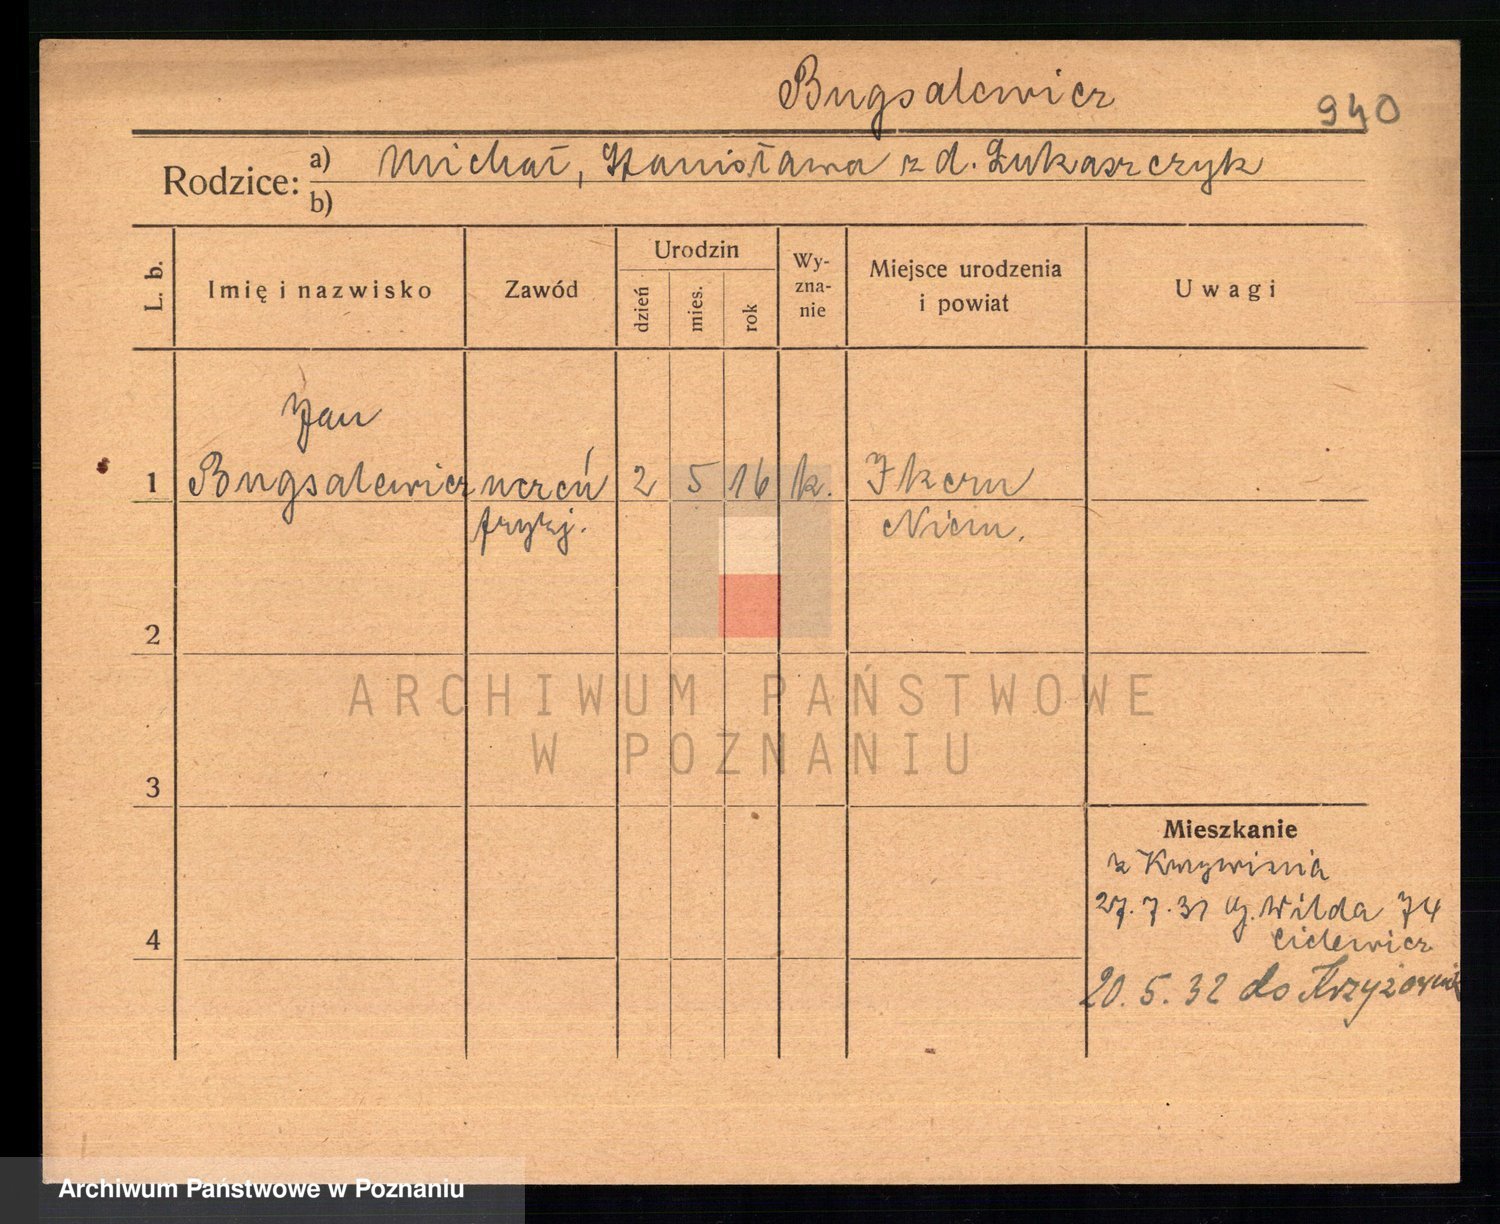 Bugsalewicz
940
Rodzice: a) Michał, Stanisława z d. Łukaszczyk
b)
L. b.
Imię i nazwisko
Zawód
Urodzin
dzień
mies.
rok
Wy-
zna-
nie
Miejsce urodzenia
i powiat
Uwagi
Jan
1 Bugsalewicz uczeń 2 5 16 k.
fryzj.
2
3
4
Mieszkanie
z Krzywinia
27.7.31 G. Wilda 74
20.5.32 do
ARCHIWUM PAŃSTWOWE
W POZNANIU
Archiwum Państwowe w Poznaniu